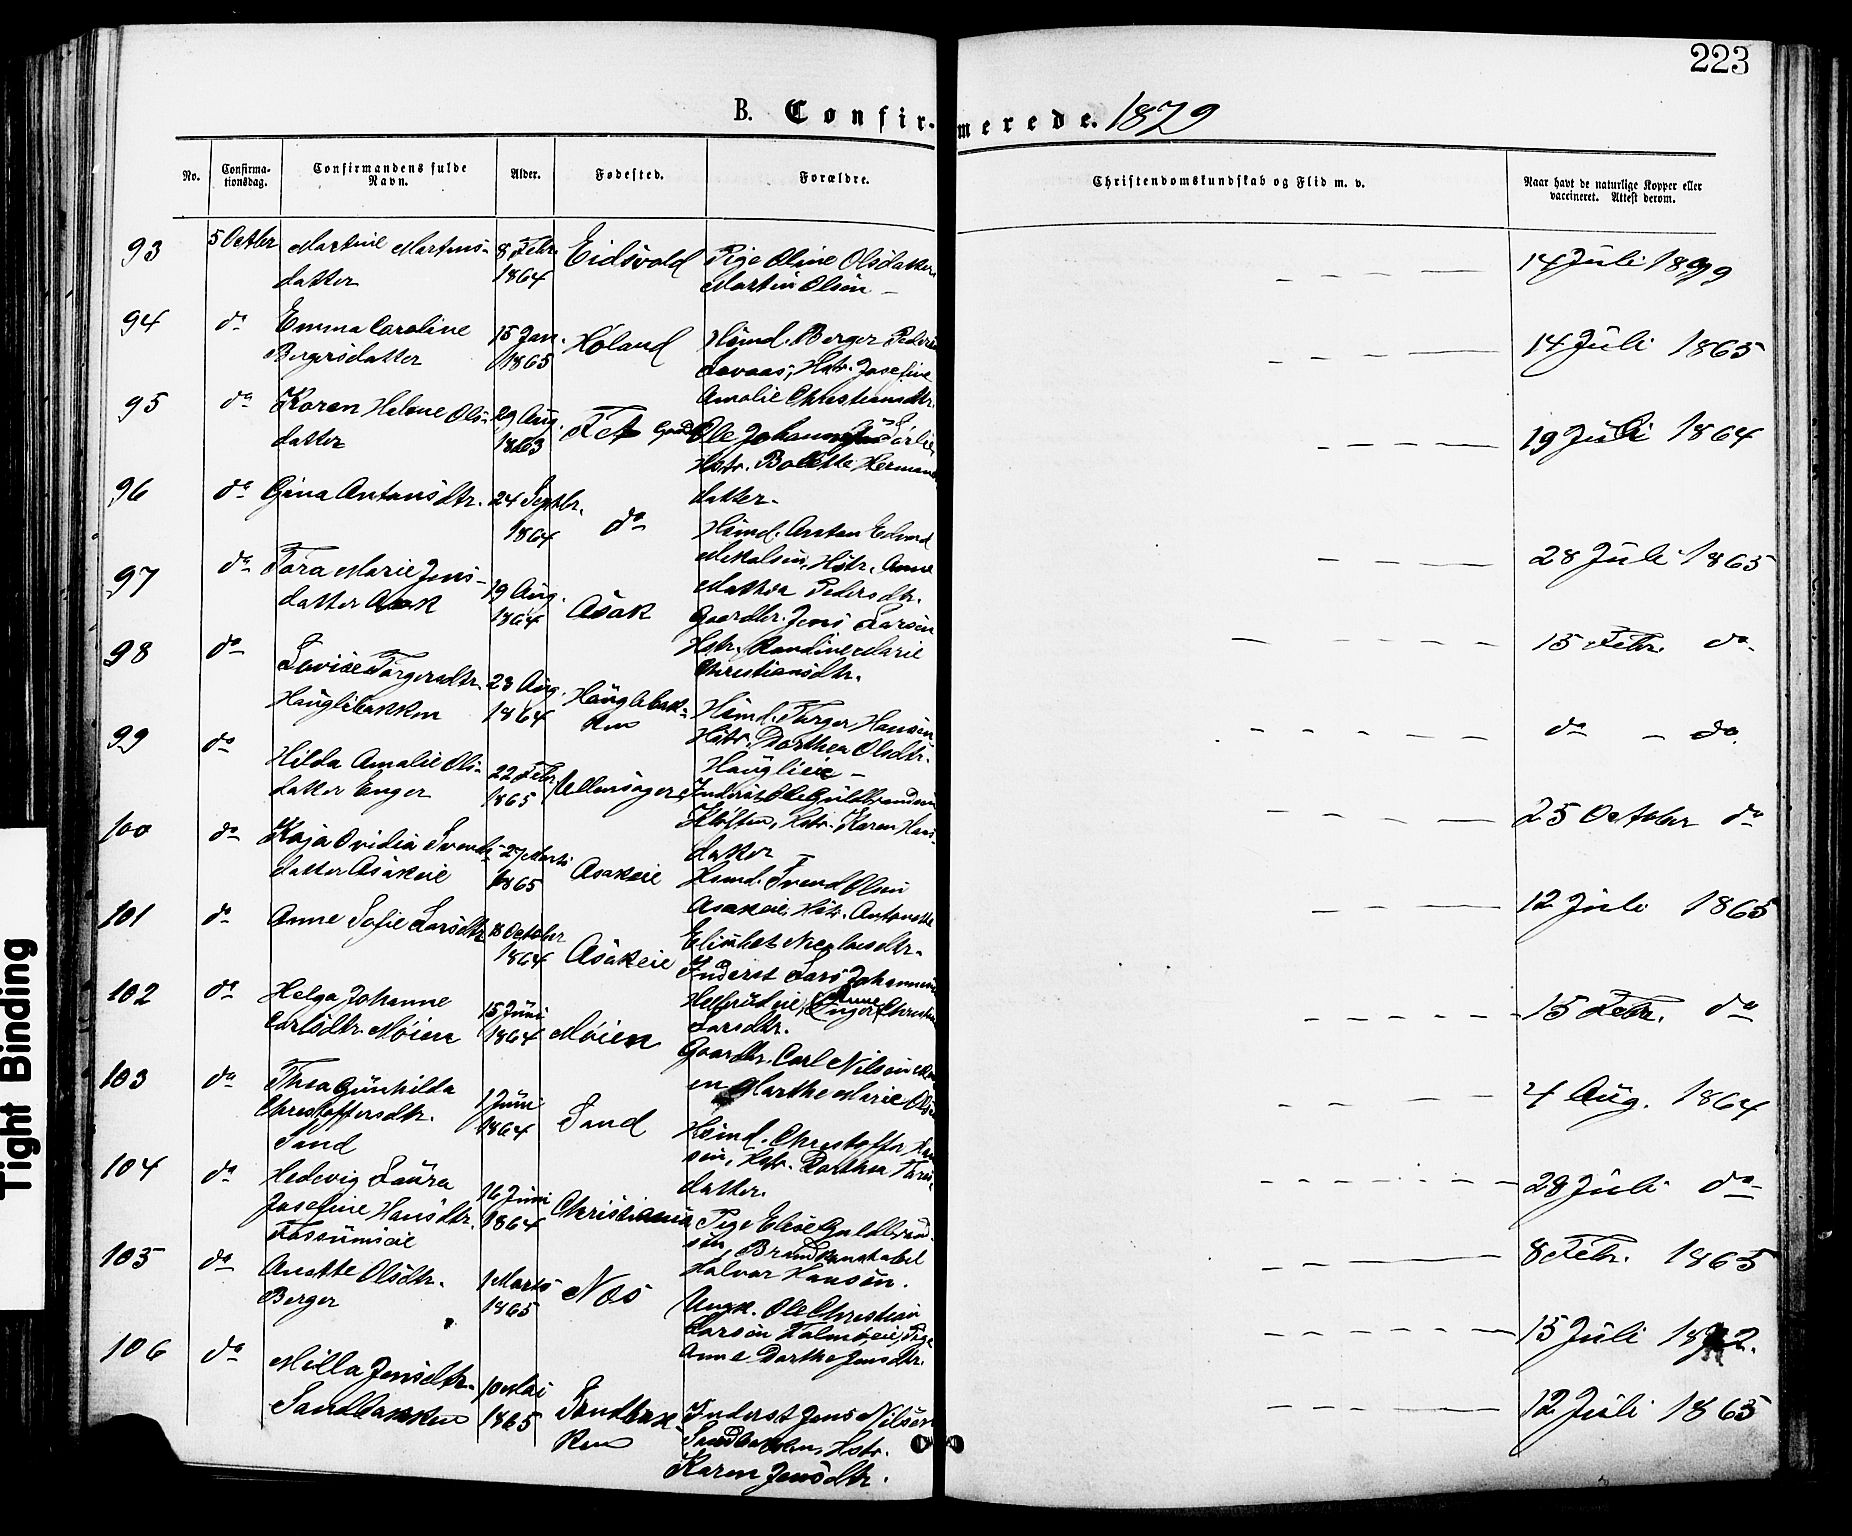 223
B. Confirmerede. 1879
No.
Confirma-
tionsdag.
Confirmandens fulde
Navn.
Alder.
Fødested.
Forældre.
Christendomskundskab og Flid m. v.
Naar havt de naturlige Kopper eller
vaccineret. Attest derom.
93 5 Octbr Martine Martins- 8 Febr. Eidsvold Pige Oline Olsdatter, 14 Juli 1879
datter 1864 Martin Olsen –
94 do Emma Caroline 15 Jan. Høland Husmd. Berger Peders 14 Juli 1865
Bergersdatter 1865 Hstr. Josefine
Amalie Christiansdtr.
95 do Karen Helene Ols- 29 Aug. Fet Ole Johannes 19 Juli 1864
datter 1863 Hstr. Bolette Hermans
datter.
96 do Gina Antonsdtr. 24 Septbr. do Husmd. Anton Edvard 28 Juli 1865
1864 Mikalsen, Hstr. Anne
Mathea Pedersdtr.
97 do Tora Marie Jens- 19 Aug. Asak Gaardbr. Jens Larsen 15 Febr. do
datter Asak 1864 Hstr. Randine Marie
Christiansdtr.
98 do Lovise Torgersdtr. 23 Aug. Hauglibak- Husmd. Torger Hansen do – do
Hauglibakken 1864 ken Hstr. Dorthea Olsdtr.
Hauglieie –
99 do Hilda Amalie Ols- 22 Febr. Ullensager Inderst Ole Guldbrandsen 25 October do
datter Enger 1865 Kløften, Hstr. Karen Hans
datter –
100 do Kaja Ovidia Svends- 27 Marts Asakeie Husmd. Svend Olsen 12 Juli 1865
datter Asakeie 1865 Asakeie, Hstr. Antonette
Elisabet Nicolaisdtr.
101 do Anne Sofie Larsdtr. 18 October Asakeie Inderst Lars Johannesen 15 Febr. do
1864 Anne Christine
Larsdtr.
102 do Helga Johanne 15 Juni Møien Gaardbr. Carl Nilsen Møi 4 Aug. 1864
Carlsdtr. Møien 1864 en, Marthe Marie Ols
103 do Thea Gunhilda 1 Juni Sand Husmd. Christoffer Han 28 Juli do
Christoffersdtr. 1864 sen, Hstr. Dorthea
Sand datter.
104 do Hedevig Laura 16 Juni Christiania Pige Elise Guldbrand 8 Febr. 1865
Josefine Hansdtr. 1864 sen, Brandkonstabel
Fossumseie Halvor Hansen.
105 do Anette Olsdtr. 1 Marts Nes Ungk. Ole Christian 15 Juli
Berger 1865 Larsen Pige
Anne Dorthe Jensdtr.
106 do Milla Jensdtr. 10 Mai Sandbak- Inderst Jens Nilsen 12 Juli 1865
Sandbakken 1865 ken Sandbakken, Hstr.
Karen Jensdtr.
Tight Binding